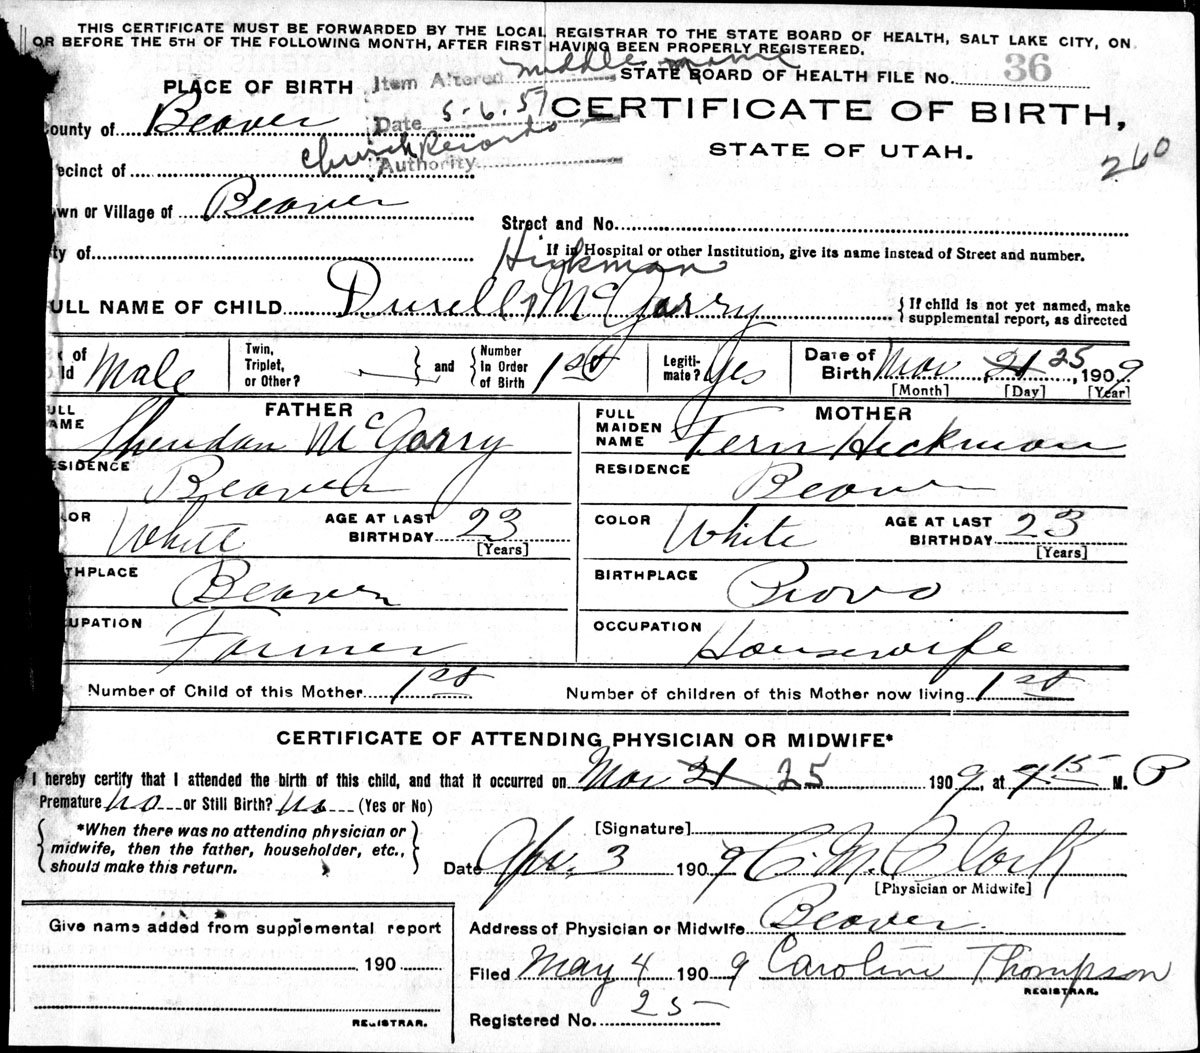 THIS CERTIFICATE MUST BE FORWARDED BY THE LOCAL REGISTRAR TO THE STATE BOARD OF HEALTH, SALT LAKE CITY, ON
OR BEFORE THE 5TH OF THE FOLLOWING MONTH, AFTER FIRST HAVING BEEN PROPERLY REGISTERED.
PLACE OF BIRTH Item Altered middle name STATE BOARD OF HEALTH FILE NO. 36
ounty of Beaver Date 5-6.57 CERTIFICATE OF BIRTH,
church Records Authority
STATE OF UTAH. 260
ecinct of
wn or Village of Beaver
Street and No.
ty of
If in Hospital or other Institution, give its name instead of Street and number.
Hickman
ULL NAME OF CHILD Durell McGarry {If child is not yet named, make supplemental report, as directed
of ld Male Twin, Triplet, or Other? and Number In Order of Birth 1st Legiti-mate? Yes Date of Birth Mar 21 25, 1909
[Month] [Day] [Year]
FATHER MOTHER
ULL AME Sheridan McGarry FULL MAIDEN NAME Fern Hickman
ESIDENCE Beaver RESIDENCE Beaver
LOR White AGE AT LAST BIRTHDAY 23 [Years] COLOR White AGE AT LAST BIRTHDAY 23 [Years]
THPLACE Beaver BIRTHPLACE Provo
UPATION Farmer OCCUPATION Housewife
Number of Child of this Mother 1st Number of children of this Mother now living 1st
CERTIFICATE OF ATTENDING PHYSICIAN OR MIDWIFE*
I hereby certify that I attended the birth of this child, and that it occurred on Mar 21 25 1909, at 9 15 M. P
Premature no or Still Birth? no (Yes or No)
{*When there was no attending physician or midwife, then the father, householder, etc., should make this return.}
[Signature]
Date Apr. 3 1909 C. M. Clark
[Physician or Midwife]
Give name added from supplemental report
190
REGISTRAR.
Address of Physician or Midwife Beaver.
Filed May 4 1909 Caroline Thompson
REGISTRAR.
Registered No. 25